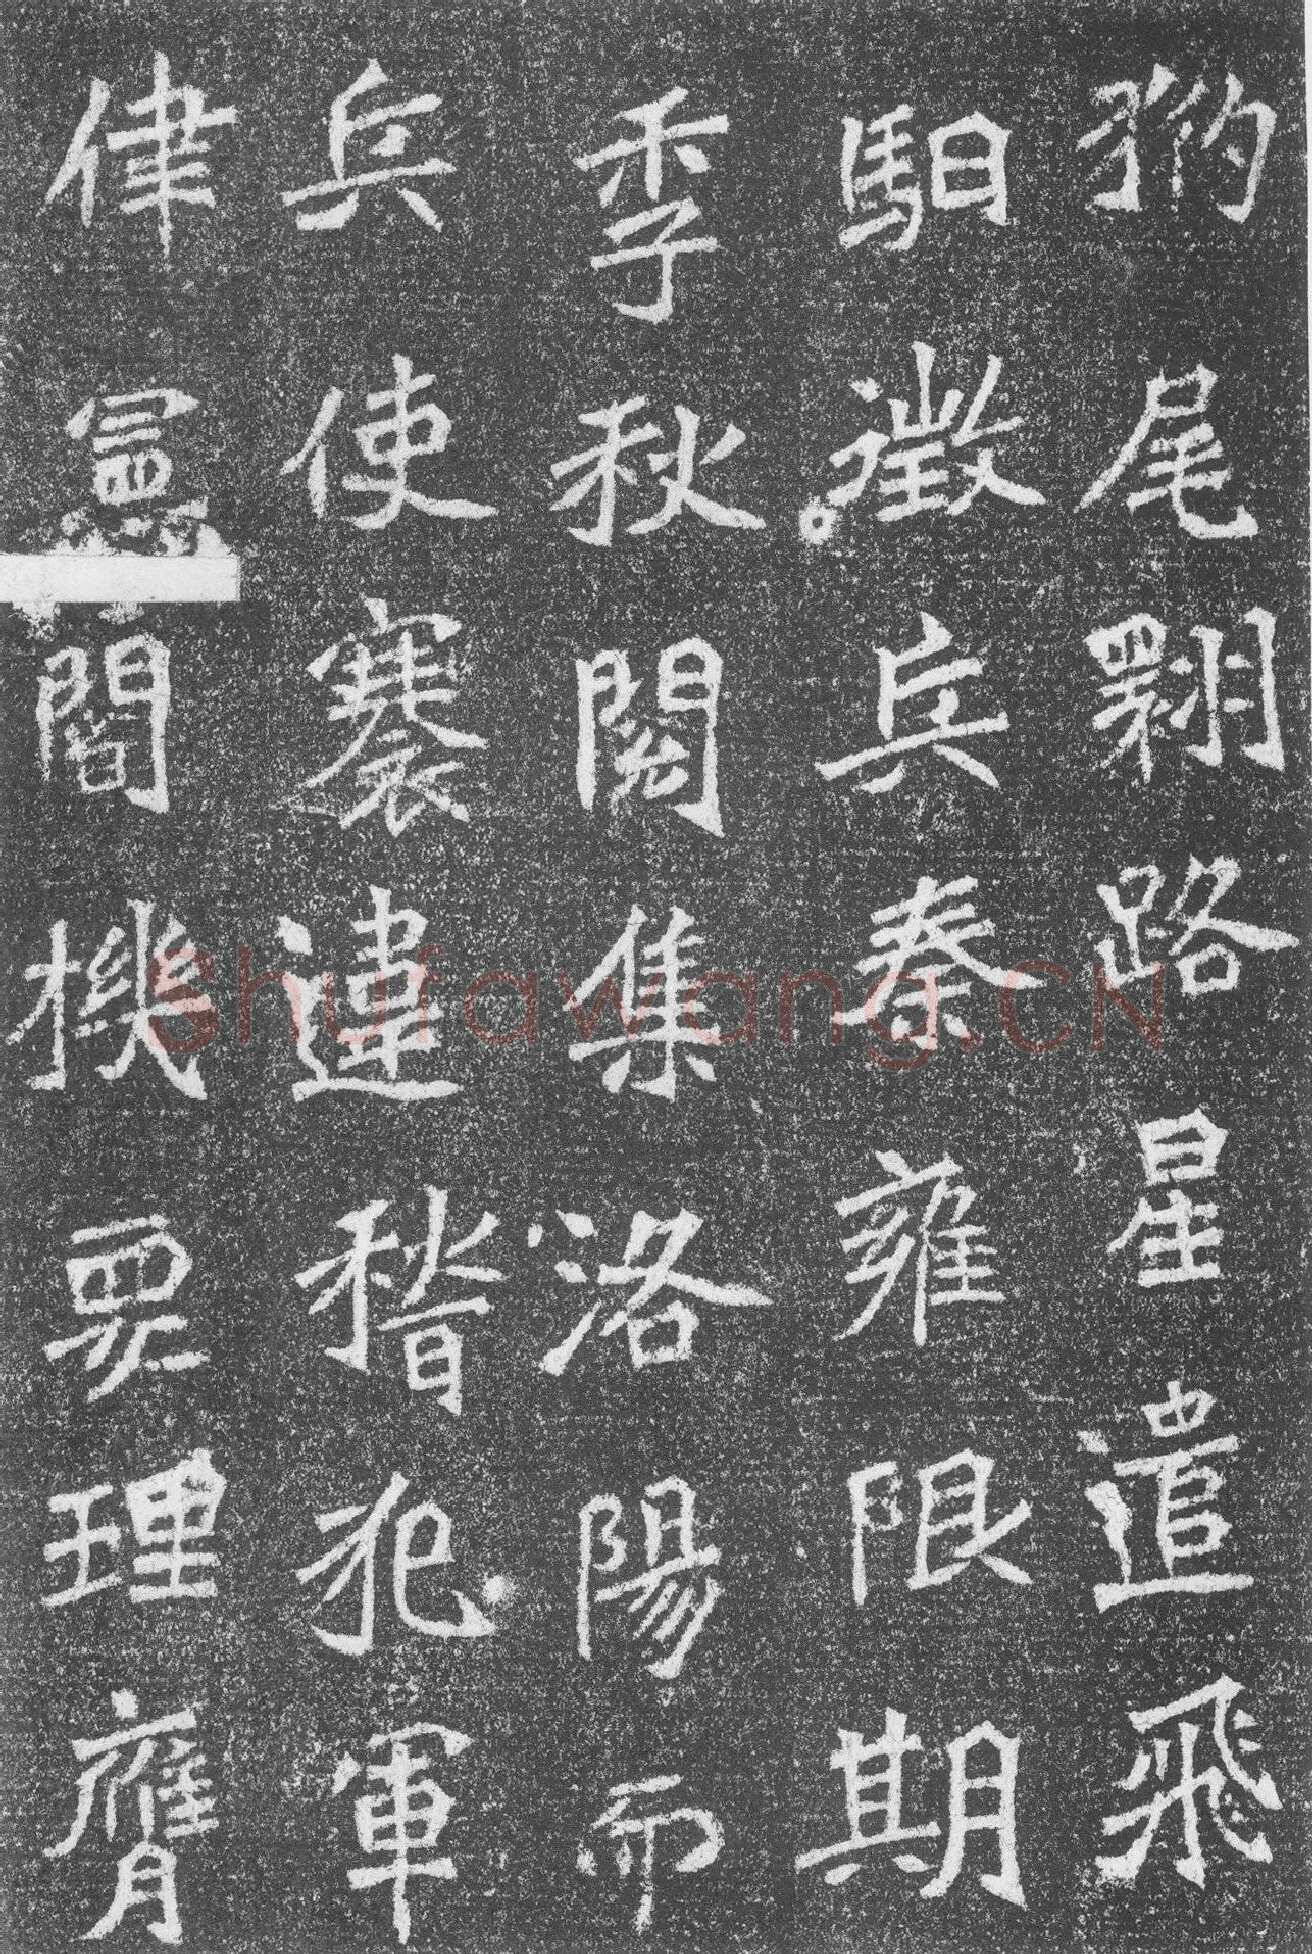 犳尾翾路星遣飛
馹徵兵秦雍限期
季秋閲集洛陽而
兵使褰違稽犯軍
律憲閻機要理膺
Shufawang.CN